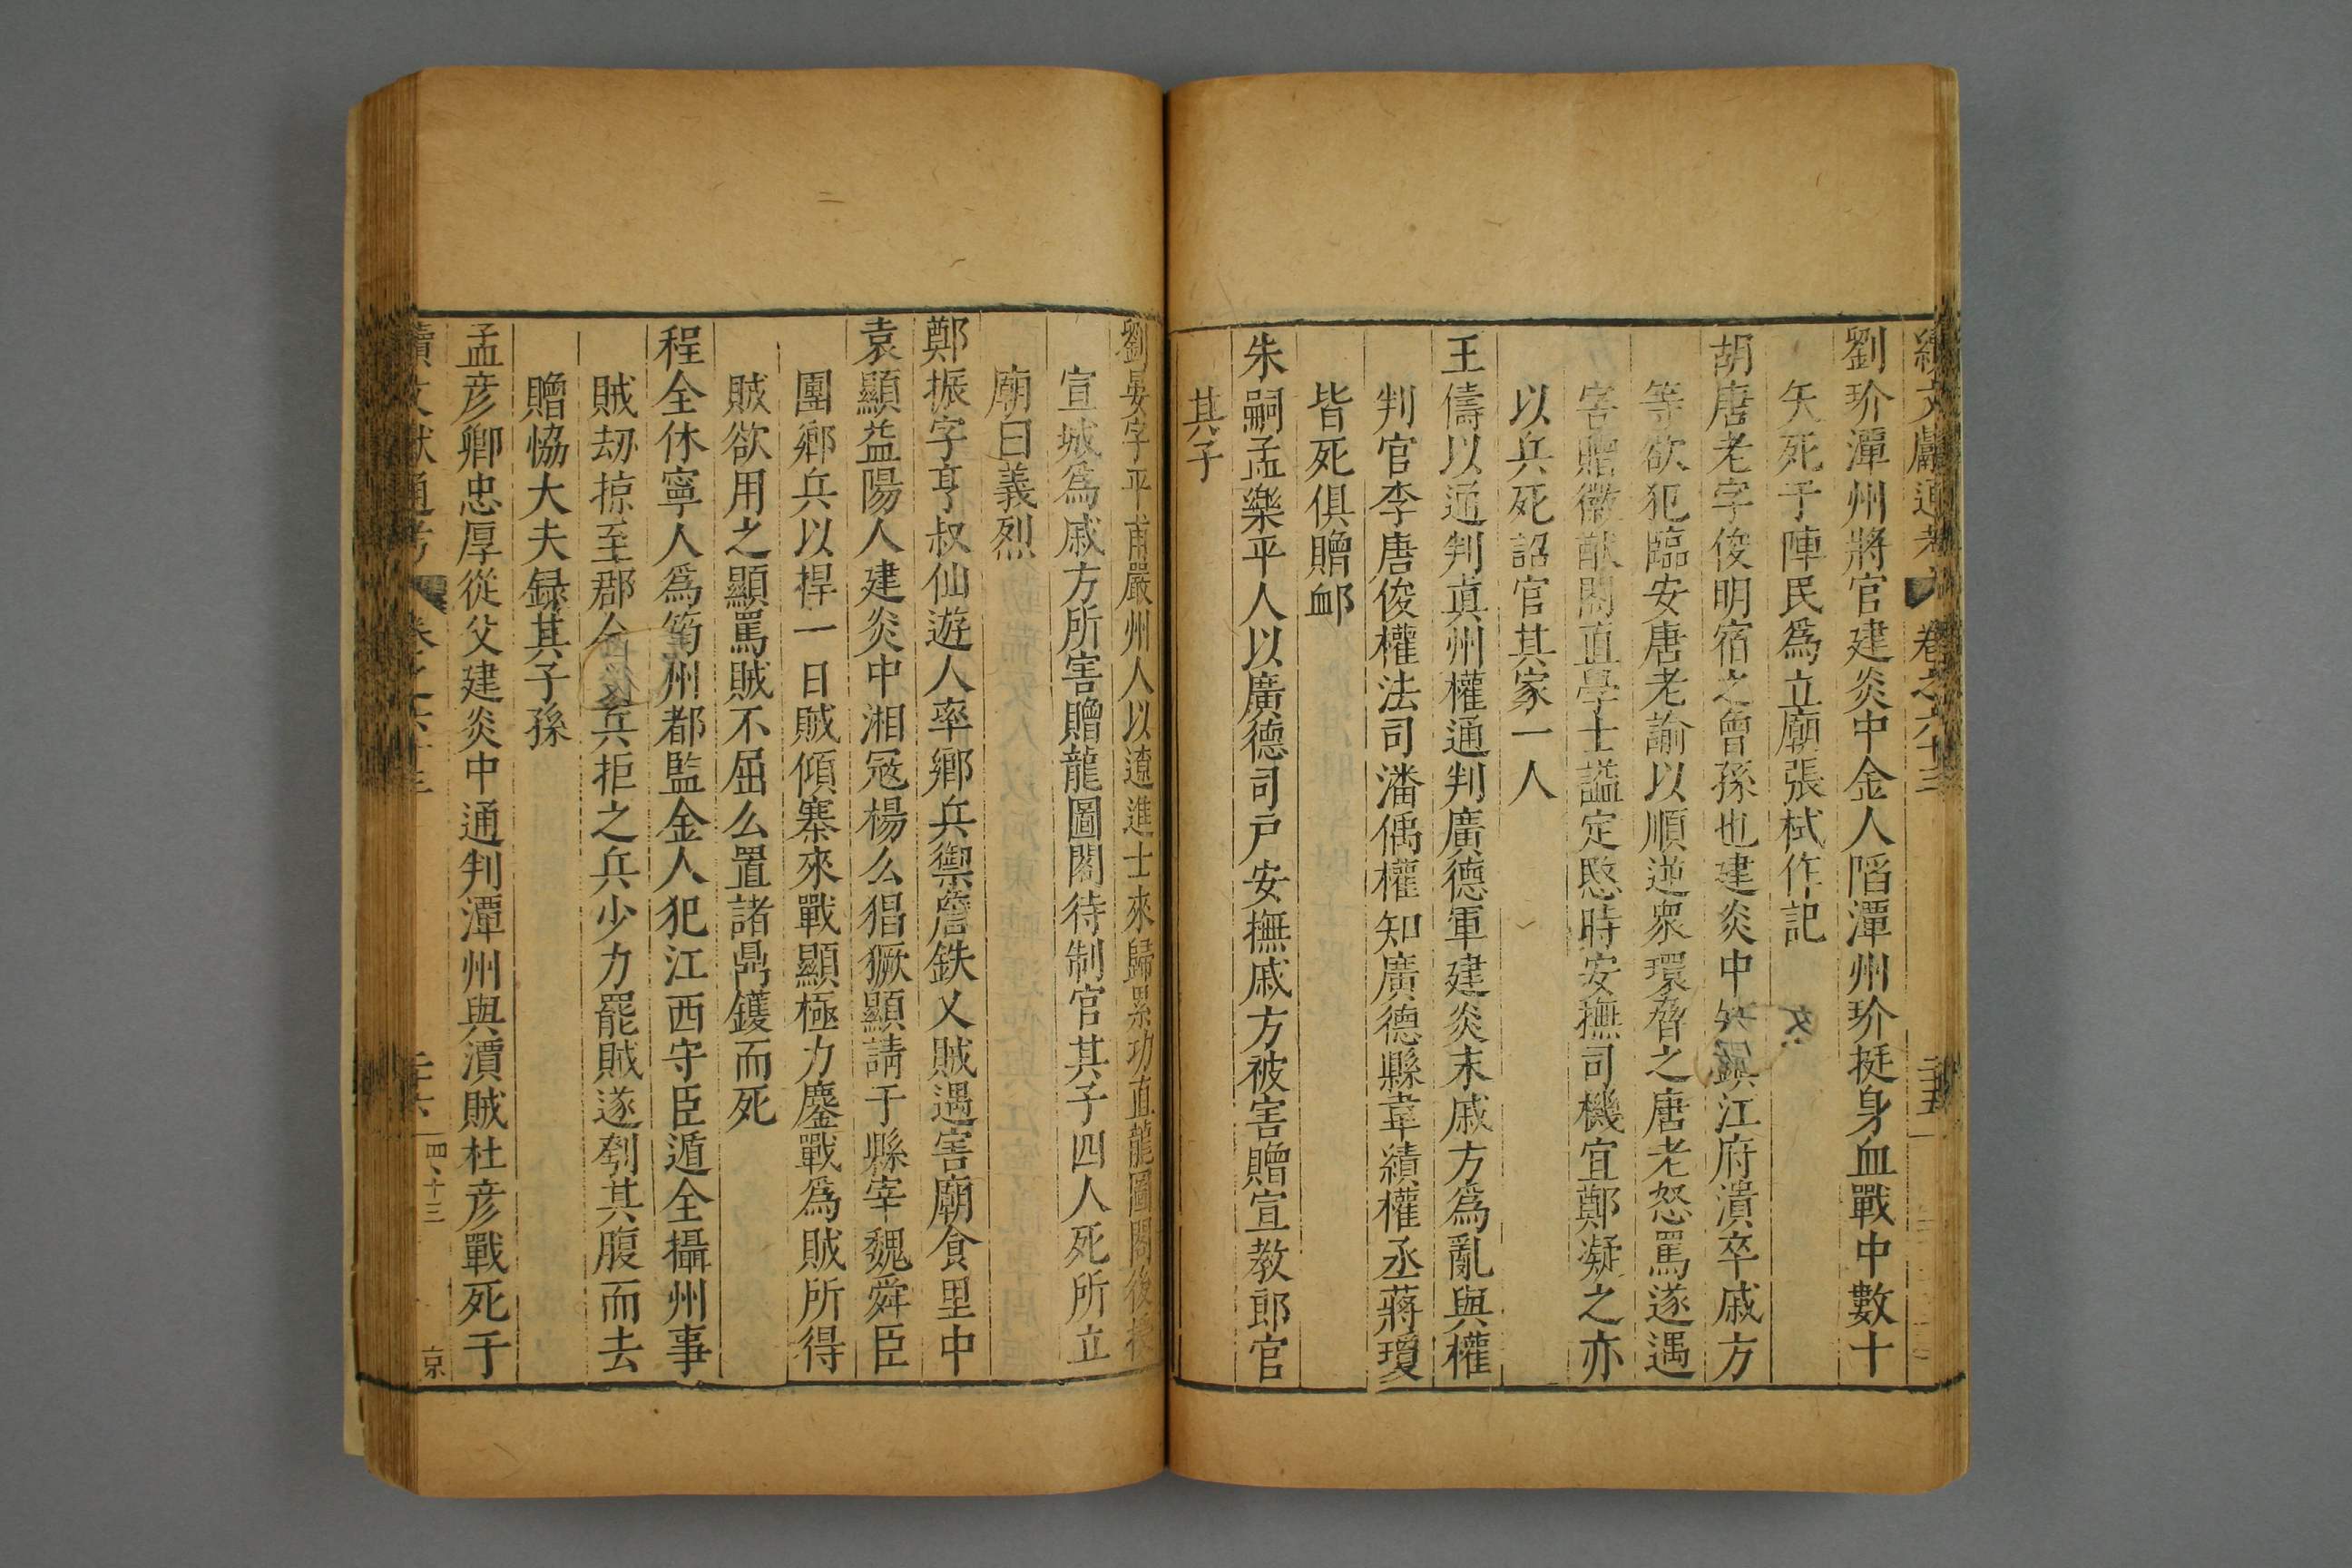 續文獻通考 卷之六十三 二十五
劉玠潭州將官建炎中金人陷潭州玠挺身血戰中數十
矢死于陣民爲立廟張栻作記
胡唐老字俊明宿之曾孫也建炎中知鎮江府潰卒戚方
等欲犯臨安唐老諭以順逆衆環脅之唐老怒罵遂遇
害贈徽猷閣直學士謚定愍時安撫司機宜鄭凝之亦
以兵死詔官其家一人
王儔以通判眞州權通判廣德軍建炎末戚方爲亂與權
判官李唐俊權法司潘偊權知廣德縣韋績權丞蔣夐
皆死俱贈卹
朱嗣孟樂平人以廣德司戶安撫戚方被害贈宣教郎官
其子
劉晏字平甫嚴州人以遼進士來歸累功直龍圖閣後
宣城爲戚方所害贈龍圖閣待制官其子四人死所立
廟曰義烈
鄭振字亨叔仙遊人率鄉兵禦詹鉄义賊遇害廟食里中
袁顯益陽人建炎中湘冦楊么猖獗顯請于縣宰魏舜臣
團鄉兵以捍一日賊傾寨來戰顯極力鏖戰爲賊所得
賊欲用之顯罵賊不屈么置諸鼎鑊而死
程全休寧人爲筠州都監金人犯江西守臣遁全攝州事
賊刼掠至郡全 兵拒之兵少力罷賊遂刳其腹而去
贈恊大夫録其子孫
孟彦卿忠厚從父建炎中通判潭州與潰賊杜彦戰死于
續文獻通考 卷之六十三 二十六 四十三 京